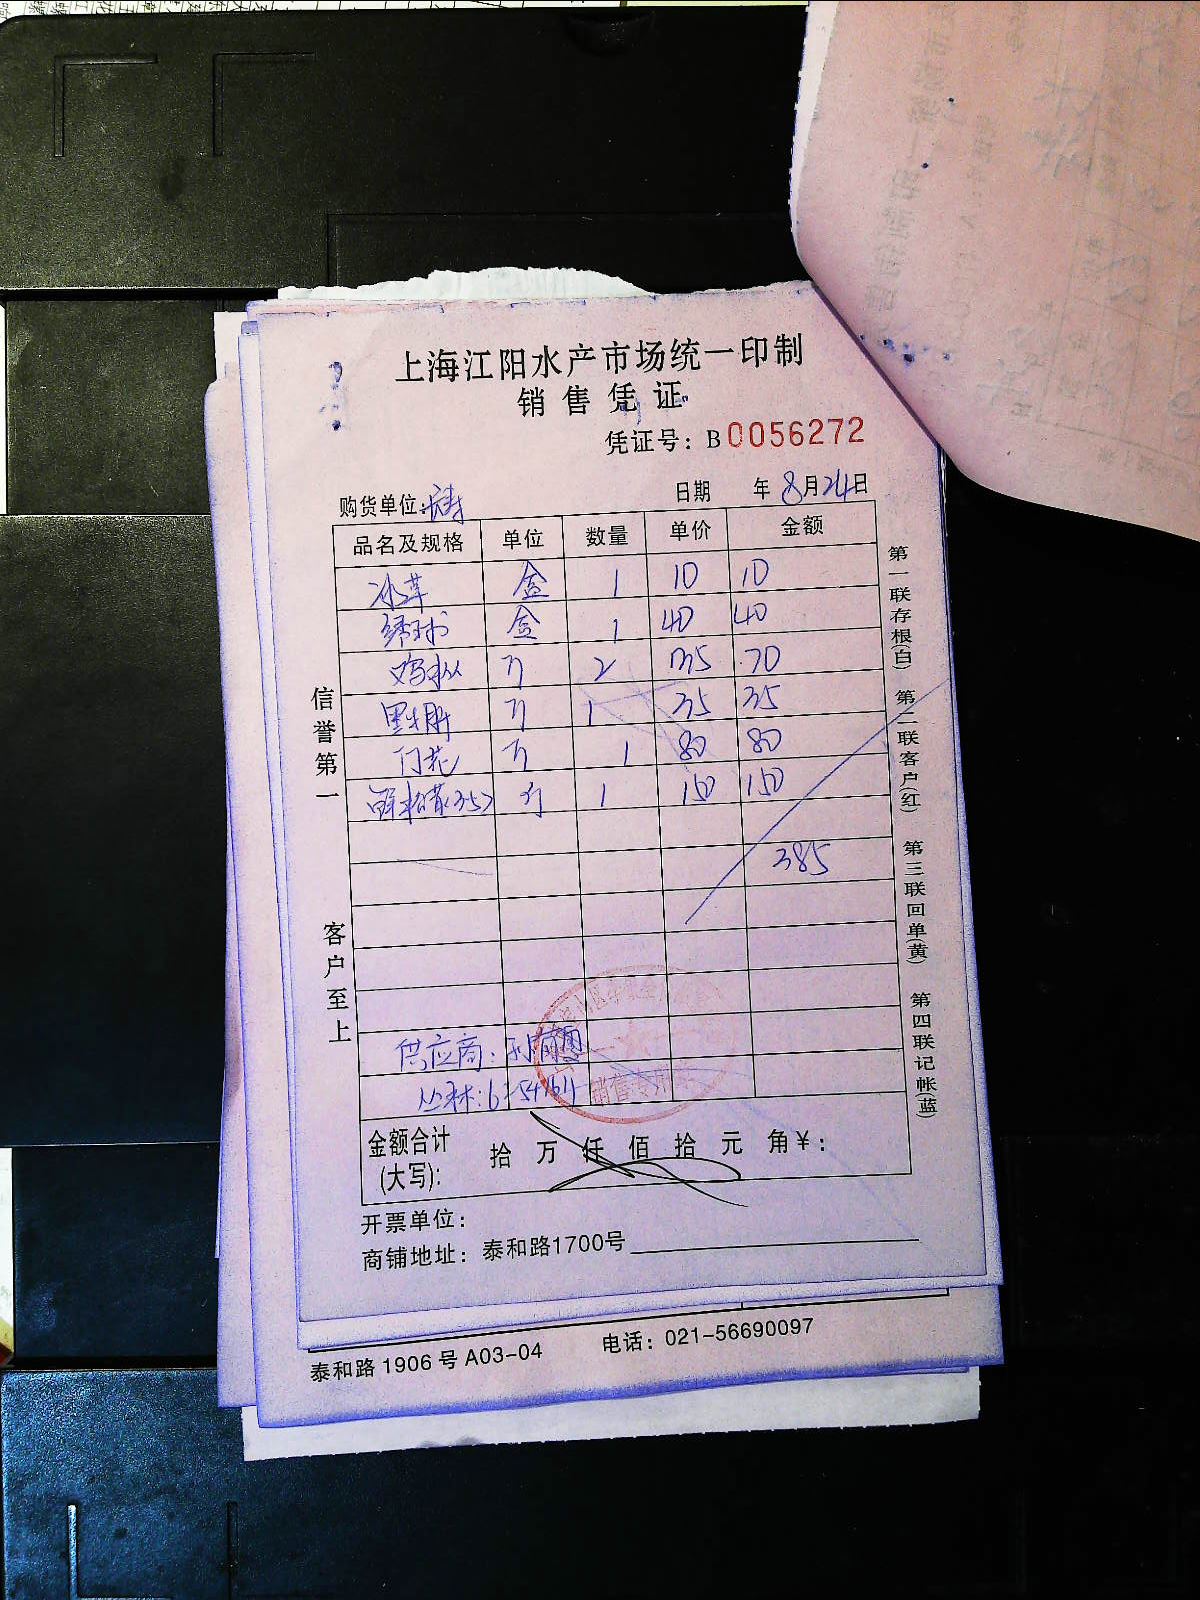 上海江阳水产市场统一印制
销售凭证
凭证号：B0056272
购货单位：涛 日期 年8月24日
品名及规格 单位 数量 单价 金额
冰草 盒 1 10 10
绣球 盒 1 40 40
鸡枞 斤 2 35 70
黑牛肝 斤 1 35 35
斤 1 80 80
鲜松茸(35) 斤 1 150 150
385
供应商：
丛林：
金额合计
(大写)： 拾 万 仟 佰 拾 元 角¥：
开票单位：
商铺地址：泰和路1700号
信誉第一
客户至上
第一联存根(白) 第二联客户(红) 第三联回单(黄) 第四联记帐(蓝)
销售专用
泰和路1906号A03-04 电话：021-56690097